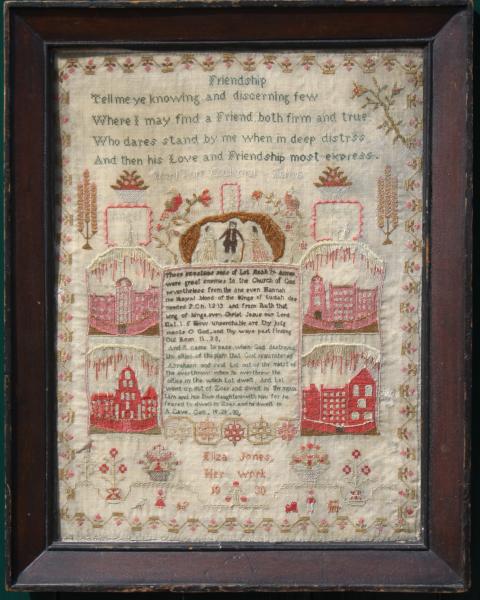 Friendship
Tell me ye knowing and discerning few
Where I may find a Friend both firm and true
Who dares stand by me when in deep distrss
And then his Love and Friendship most express.
These incestous sons of Lot Moab &
were great enemies to the Church of God
nevertheless from the one even
the Royal blood of the Kings of Judah
2 Ch. 12.13 and from Ruth that
king of kings even Christ Jesus our Lord
Mat. 1. 5 How unserchable are thy judg
ments O God, and thy ways past finding
Out Rom 11. 33.
And it came to pass when God destroyed
the cities of the plain that God remembered
Abraham and sent Lot out of the midst of
the overthrow when he overthrew the
cities in the which Lot dwelt. And Lot
went up out of Zoar and dwelt in the moun
tain and his two daughters with him for he
feared to dwell in Zoar and he dwelt in
A Cave. Gen. 19. 29. 30.
Eliza Jones,
Her work
18 30